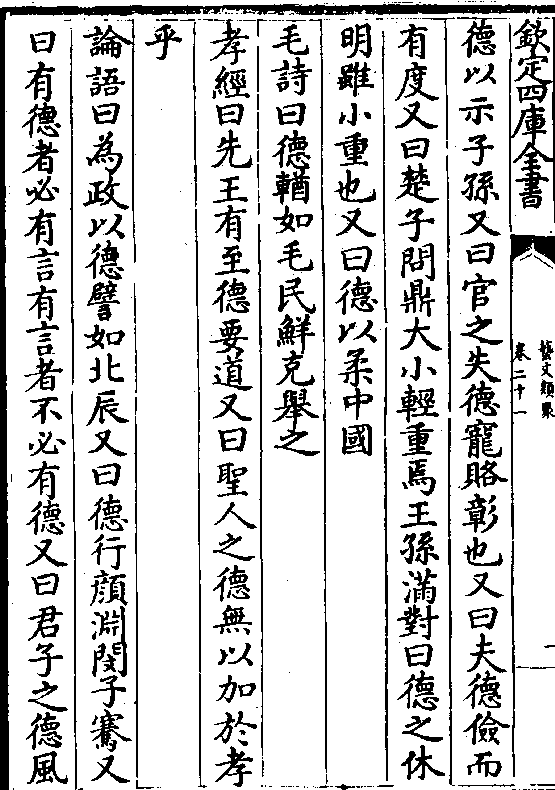 欽定四庫全書
藝文類聚
卷二十一
一
德以示子孫又曰官之失德寵賂彰也又曰夫德儉而
有度又曰楚子問鼎大小輕重焉王孫滿對曰德之休
明雖小重也又曰德以柔中國
毛詩曰德輶如毛民鮮克舉之
孝經曰先王有至德要道又曰聖人之德無以加於孝
乎
論語曰為政以德譬如北辰又曰德行顔淵閔子騫又
曰有德者必有言有言者不必有德又曰君子之德風